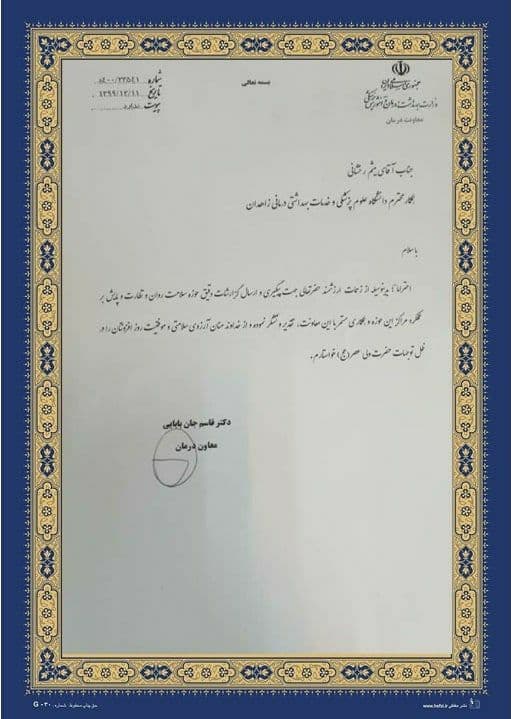 جمهوری اسلامی ایران
وزارت بهداشت، درمان و آموزش پزشکی
معاونت درمان
بسمه تعالی
شماره
تاریخ ۱۳۹۹/۱۲/۱۱
پیوست ندارد
جناب آقای میثم رخشانی
همکار محترم دانشگاه علوم پزشکی و خدمات بهداشتی درمانی زاهدان
با سلام
احتراماً بدینوسیله از زحمات ارزشمند حضرتعالی جهت پیگیری و ارسال گزارشات دقیق حوزه سلامت روان و نظارت و پایش بر
عملکرد مراکز این حوزه و همکاری مستمر با این معاونت، تقدیر و تشکر نموده و از خداوند منان آرزوی سلامتی و موفقیت روز افزونتان را در
ظل توجهات حضرت ولی عصر (عج) خواستارم.
دکتر قاسم جان بابایی
معاون درمان
G ۰۳۰
حق چاپ محفوظ. شماره.
www.hafzi.ir